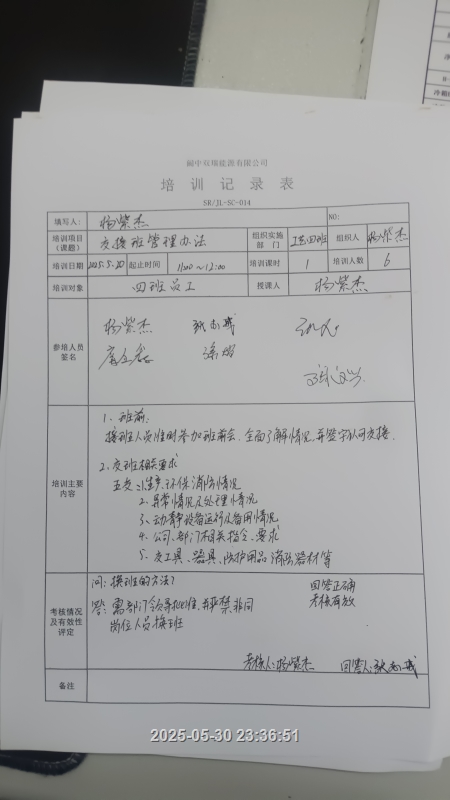 阆中双瑞能源有限公司
培训记录表
SR/JL-SC-014
填写人： 杨紫杰 NO:
培训项目（课题） 交接班管理办法 组织实施部门 工艺四班 组织人 杨紫杰
培训日期 2025.5.20 起止时间 11:00～12:00 培训课时 1 培训人数 6
培训对象 四班员工 授课人 杨紫杰
参培人员签名
杨紫杰
培训主要内容
1、班前：
接班人员准时参加班前会、全面了解情况，并签字认可交接。
2、交班相关要求
五交：1.生产、环保、消防情况
2、异常情况及处理情况
3、动静设备运行及备用情况
4、公司、部门相关指令、要求
5、交工具、器具、防护用品、消防器材等
考核情况及有效性评定
问：换班的方法？ 回答正确
答：需部门领导批准，并严禁非同 考核有效
岗位人员换班
考核人：杨紫杰 回答人：
备注
2025-05-30 23:36:51